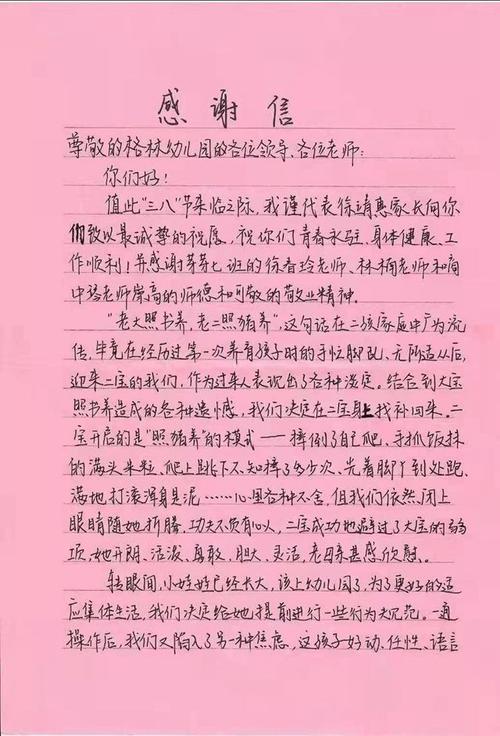 感谢信
尊敬的格林幼儿园的各位领导、各位老师:
你们好!
值此“三八”节来临之际,我谨代表徐靖惠家长向你
们致以最诚挚的祝愿,祝你们青春永驻、身体健康、工
作顺利!并感谢芽芽七班的徐春玲老师、林楠老师和商
中琴老师崇高的师德和可敬的敬业精神.
“老大照书养,老二照猪养”,这句话在二孩家庭中广为流
传,毕竟在经历过第一次养育孩子时的手忙脚乱、无所适从后,
迎来二宝的我们,作为过来人表现出了各种淡定,结合到大宝
照书养造成的各种遗憾,我们决定在二宝身上找补回来。二
宝开启的是“照猪养”的模式——摔倒了自己爬、手抓饭抹
的满头米粒、爬上跳下不知摔了多少次、光着脚丫到处跑、
满地打滚浑身是泥……心里各种不舍,但我们依然闭上
眼睛随她折腾,功夫不负有心人,二宝成功地避过了大宝的弱
项,她开朗、活泼、勇敢、胆大、灵活,老母亲甚感欣慰。
转眼间,小娃娃已经长大,该上幼儿园了,为了更好的适
应集体生活,我们决定给她提前进行一些行为规范。一通
操作后,我们又陷入了另一种焦虑,这孩子好动、任性、语言